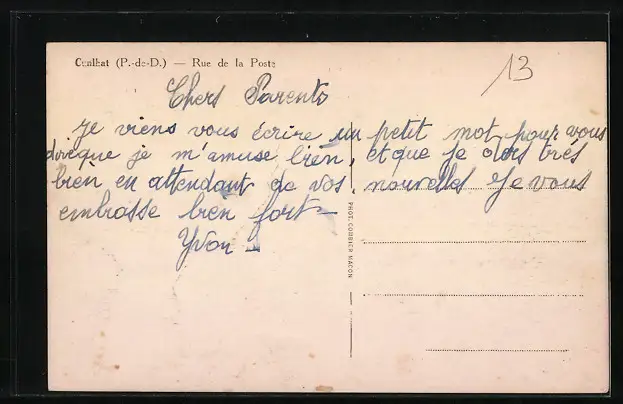 Cunlhat (P.-de-D.) — Rue de la Poste
13
Chers Parents
Je viens vous écrire un petit mot pour vous
dire que je m'amuse bien, et que je dors très
bien en attendant de vos nouvelles Je vous
embrasse bien fort
Yvon
PHOT. COMBIER MACON